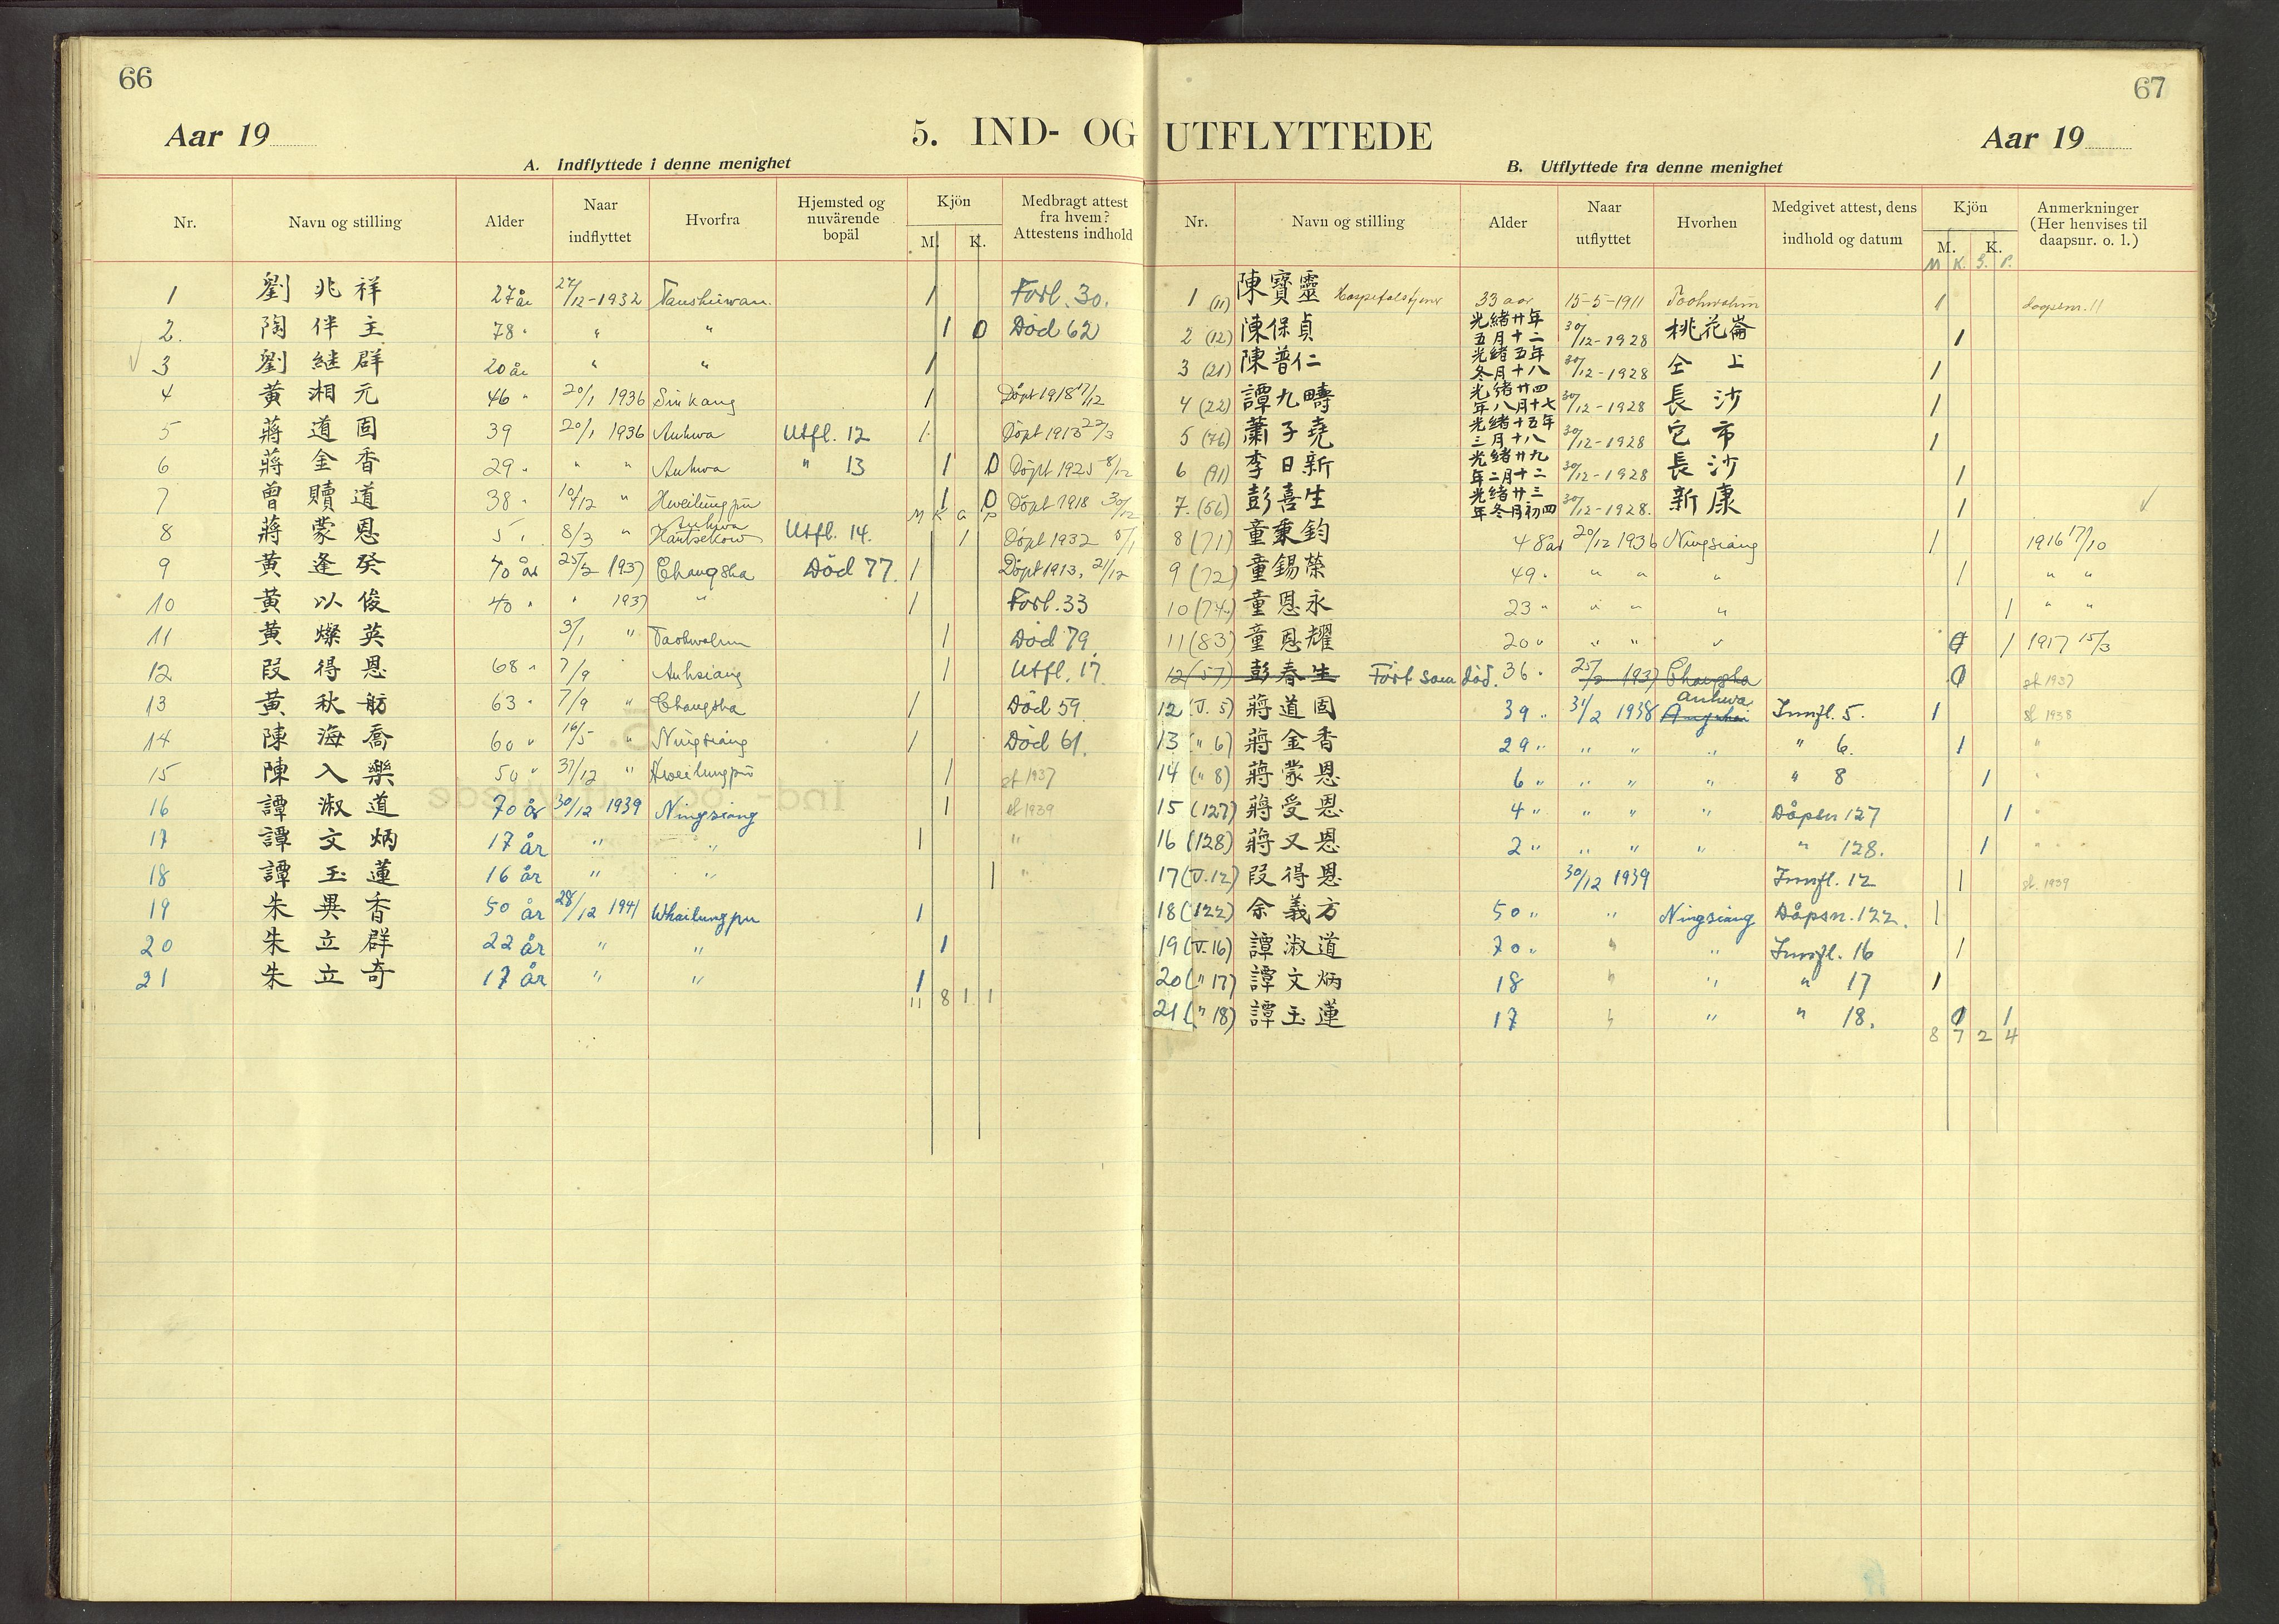 66
Aar 19
5. IND- OG
A. Indflyttede i denne menighet
Nr. Navn og stilling Alder Naar indflyttet Hvorfra Hjemsted og nuvärende bopäl Kjön M. K. Medbragt attest fra hvem? Attestens indhold
1 劉兆祥 27 år 27/12-1932 Taushiwan 1 Forl. 30.
2. 陶伴主 78 " " " 1 0 Död 62
3 劉継群 20 år " " 1
4 黃湘元 46 " 20/1 1936 Sinkang 1 Döpt 1918 17/12
5 蔣道固 39 20/1 1936 Anhwa Utfl. 12 1 Döpt 1913 22/3
6 蔣金香 29 " " " Anhwa " 13 1 0 Döpt 1925 8/12
7 曾贖道 38 " 10/12 " Hweilungpu 1 0 Döpt 1918 30/12
M K G P
8 蔣蒙恩 5 " 8/3 " Anhwa Utfl. 14. 1 Döpt 1932 5/1
9 黃逢癸 70 år 25/2 1937 Changsha Död 77. 1 Döpt 1913, 21/12
10 黃以俊 40 " " 1937 " 1 Forl. 33
11 黃燦英 3/1 " Taohwalun 1 Död 79
12 段得恩 68 " 7/9 " Anhsiang 1 Utfl. 17.
13 黃秋舫 63 " 7/9 " Changsha 1 Död 59
14 陳海喬 60 " 10/5 " Ningsiang 1 Död 61.
15 陳入樂 50 " 31/12 " Hweilungpu 1 st 1937
16 譚淑道 70 år 30/12 1939 Ningsiang 1 st 1939
17 譚文炳 17 år " " 1 "
18 譚玉蓮 16 år " " 1 "
19 朱異香 50 år 28/12 1941 Whailungpu 1
20 朱立群 22 år " " 1
21 朱立奇 17 år " " 1
11 8 1 1
67
UTFLYTTEDE
Aar 19
B. Utflyttede fra denne menighet
Nr. Navn og stilling Alder Naar utflyttet Hvorhen Medgivet attest, dens indhold og datum Kjön M. K. Anmerkninger (Her henvises til daapsnr. o. l.)
M K. G. P.
1 (11) 陳寶靈 Hospitalstjener 33 aar 15-5-1911 Taohwalun 1 daapsnr. 11
2 (12) 陳保貞 光緒廿年五月十二 30/12-1928 桃花崙 1
3 (21) 陳普仁 光緒五年冬月十八 30/12-1928 仝上 1
4 (22) 譚九疇 光緒廿四年八月十七 30/12-1928 長沙 1
5 (76) 蕭子堯 光緒十五年三月十八 30/12-1928 宅市 1
6 (91) 李日新 光緒廿九年二月十二 30/12-1928 長沙 1
7. (56) 彭喜生 光緒廿三年冬月初四 30/12-1928. 新康 1
8 (71) 童秉鈞 48 år 20/12 1936 Ningsiang 1 1916 17/10
9 (72) 童錫榮 49 " " " " 1 " "
10 (74) 童恩永 23 " " " " 1 " "
11 (83) 童恩耀 20 " " " " 1 1917 15/3
12 (57) 彭春生 Fört som död. 36 " 25/2 1937 Changsha st 1937
12 (V. 5) 蔣道固 39 " 31/2 1938 Anhwa Innfl. 5. 1 st 1938
13 (" 6) 蔣金香 29 " " " " " 6. 1 "
14 (" 8) 蔣蒙恩 6 " " " " " 8 1 "
15 (127) 蔣受恩 4 " " " " Dåpsn 127 1 "
16 (128) 蔣又恩 2 " " " " " 128. 1 "
17 (V. 12) 段得恩 30/12 1939 Innfl. 12 1 st. 1939
18 (122) 余義方 50 " " Ningsiang Dåpsn. 122. 1
19 (V. 16) 譚淑道 70 " " " Innfl. 16 1
20 (" 17) 譚文炳 18 " " " 17 1
21 (" 18) 譚玉蓮 17 " " " 18. 1
8 7 2 4